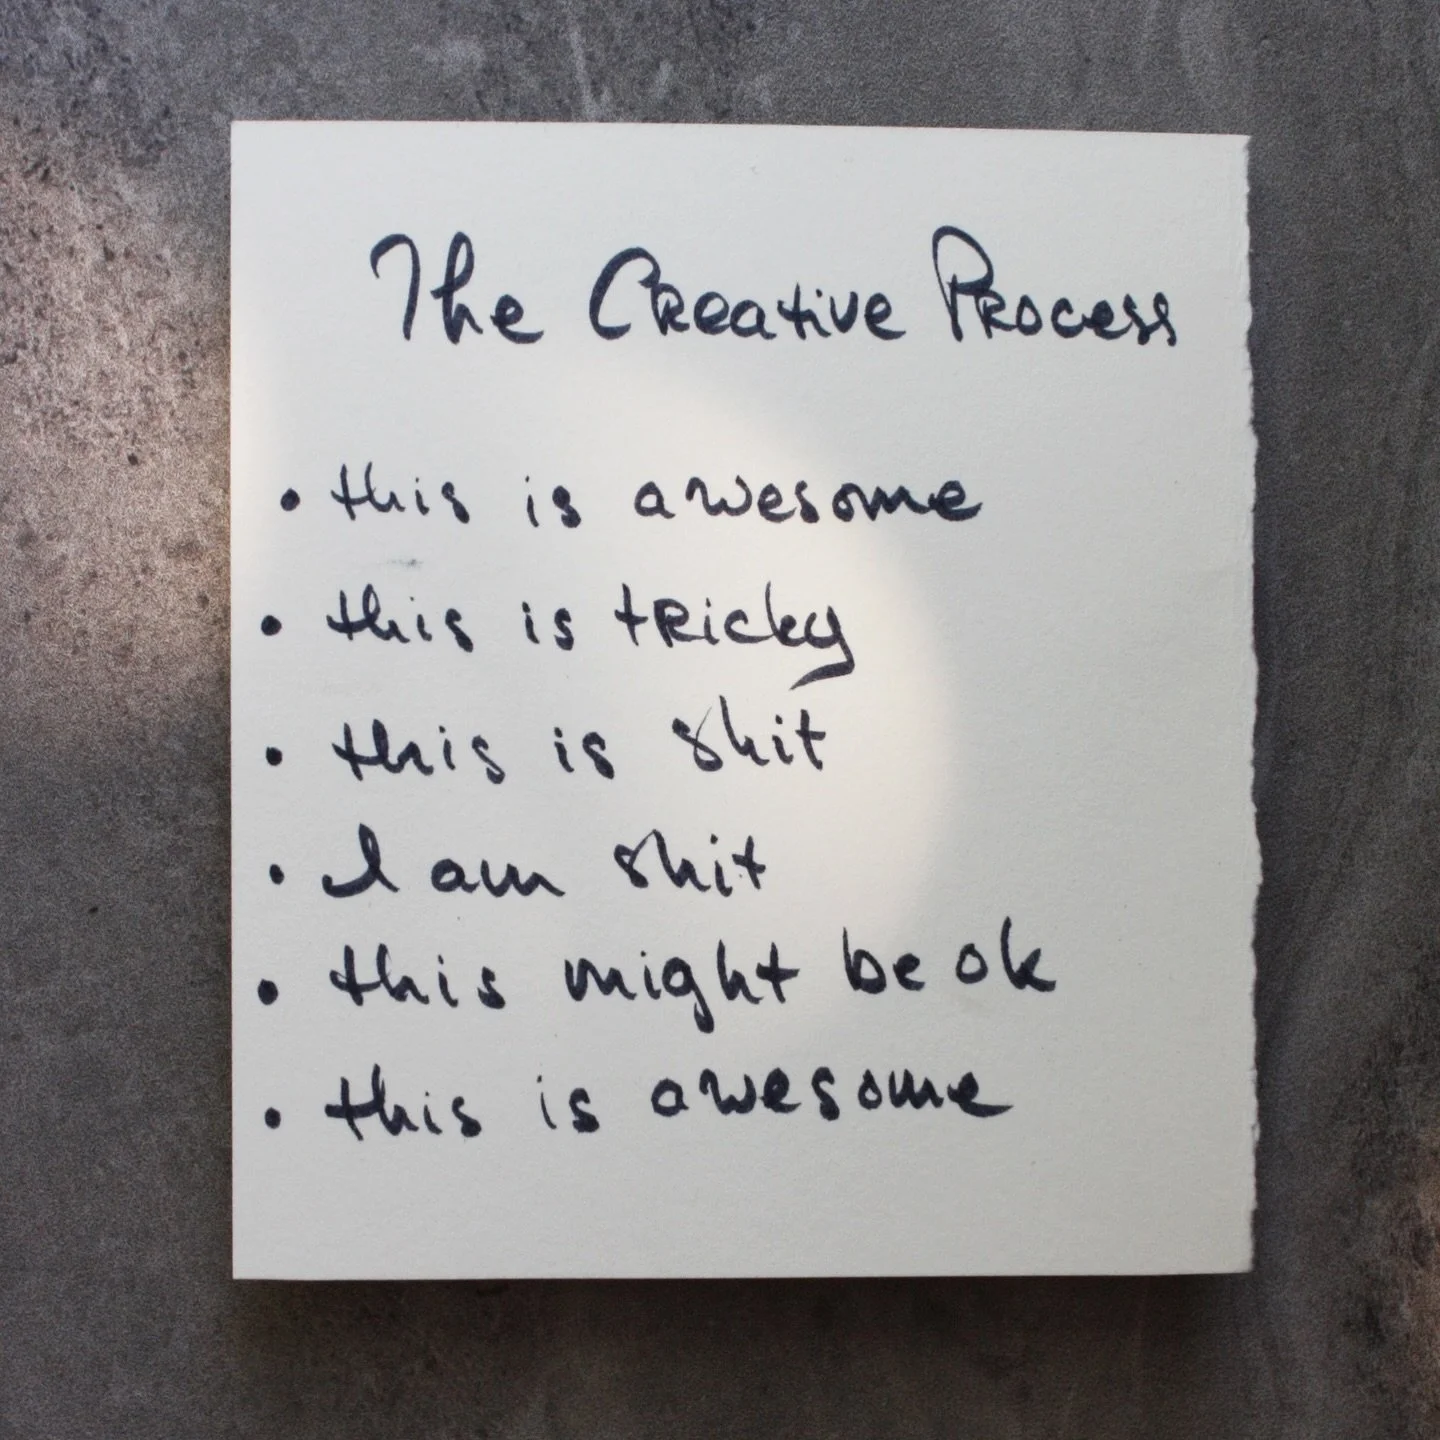 The Creative Process
• this is awesome
• this is tricky
• this is shit
• I am shit
• this might be ok
• this is awesome